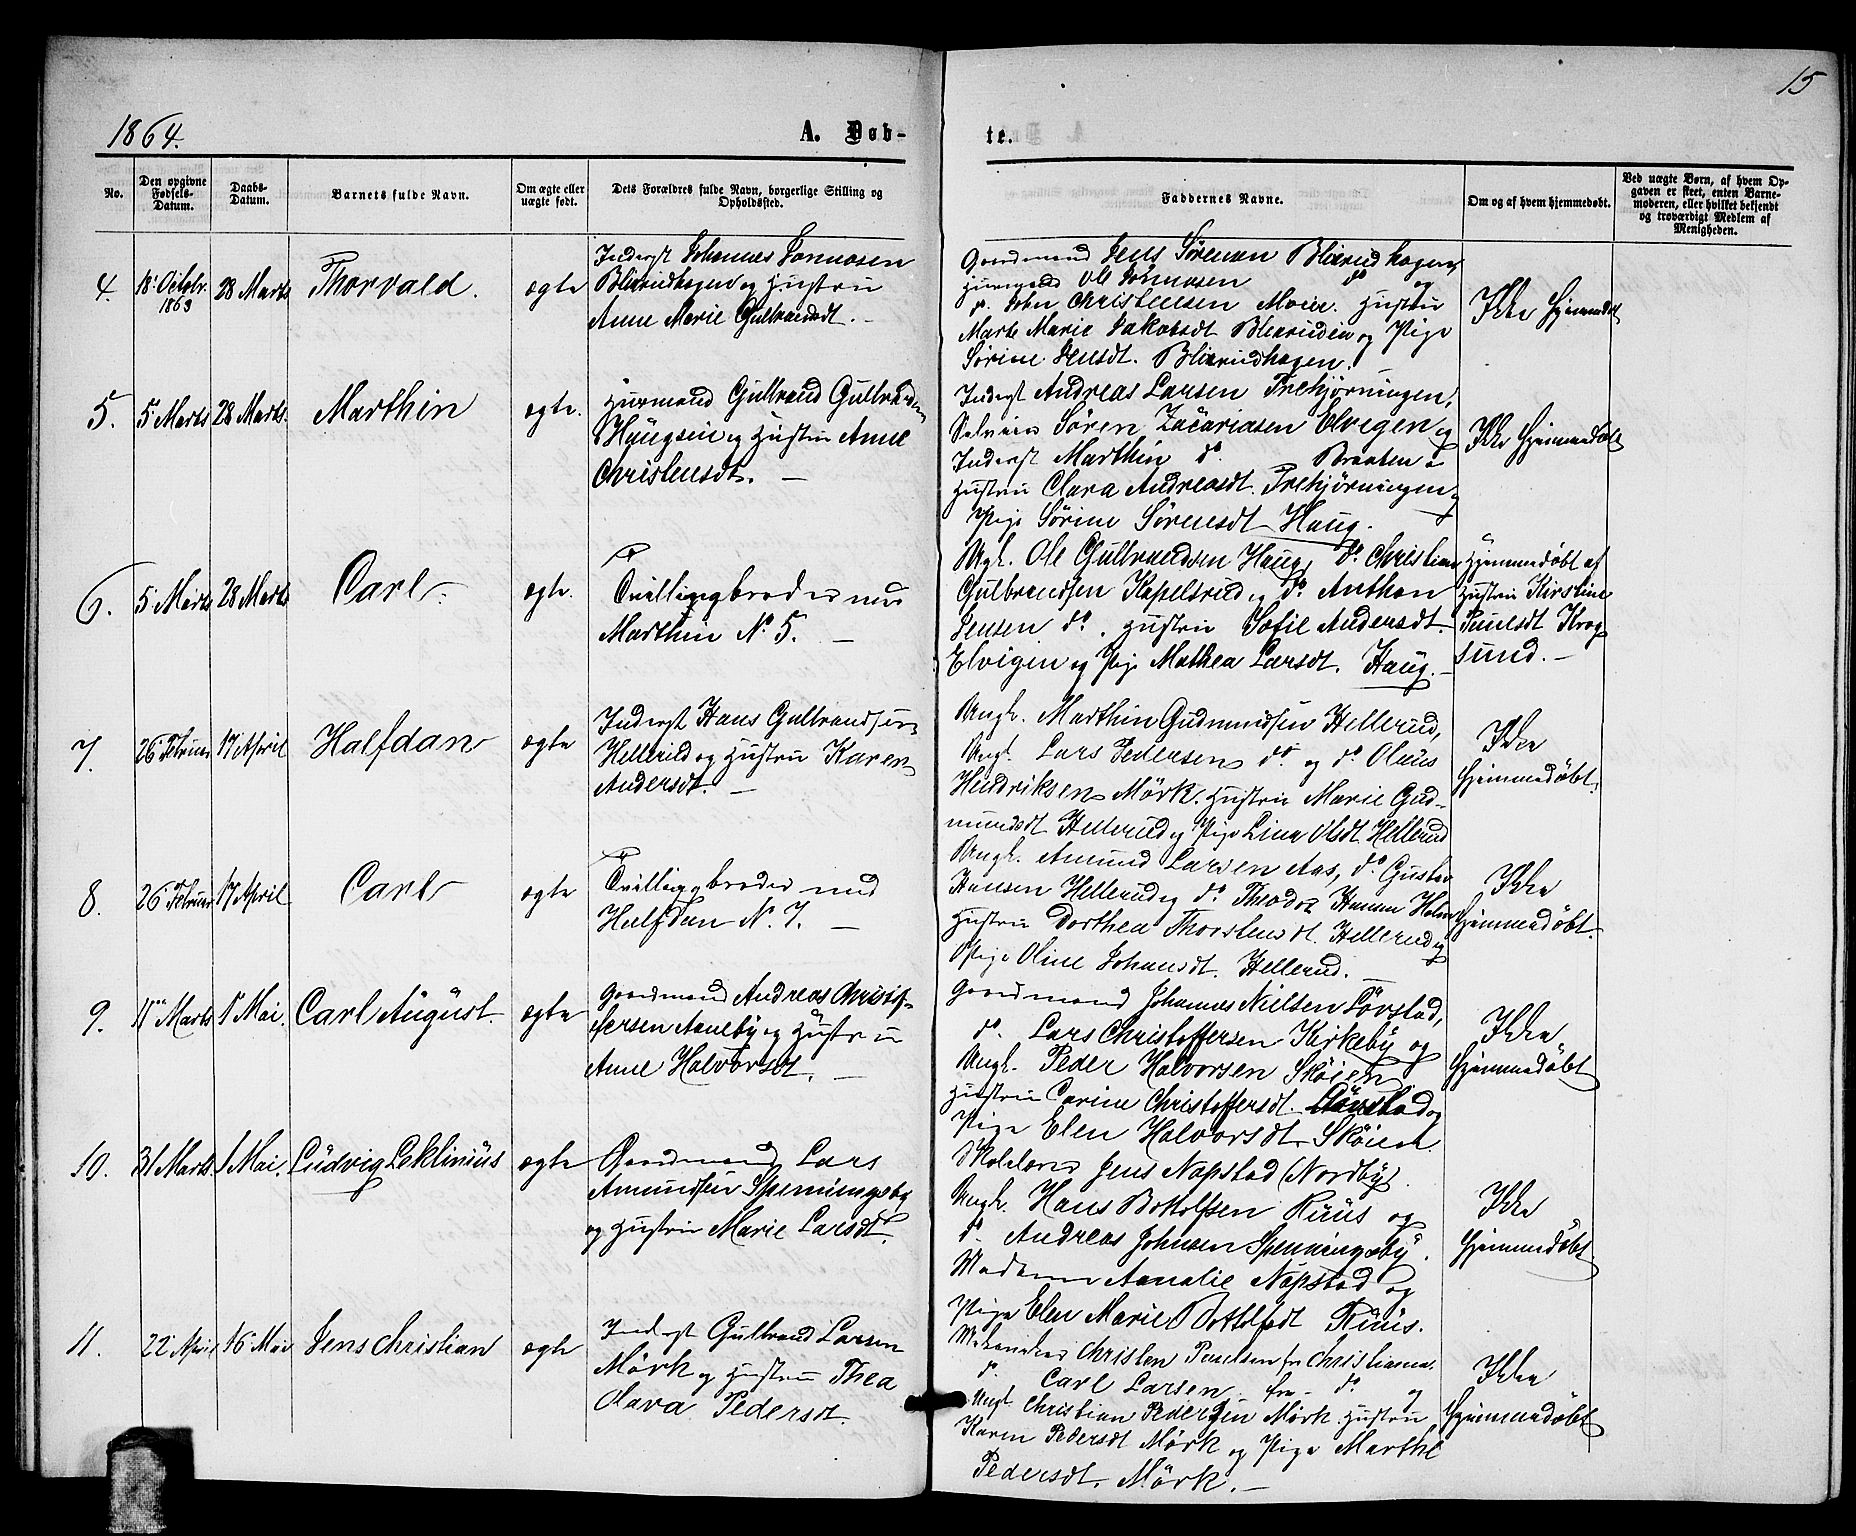 15
1864.
A. Døb-
te.
No.
Den opgivne
Fødsels-
Datum.
Daabs-
Datum.
Barnets fulde Navn.
Om ægte eller
uægte født.
Dets Forældres fulde Navn, borgerlige Stilling og
Opholdssted.
Faddernes Navne.
Om og af hvem hjemmedøbt.
Ved uægte Børn, af hvem Op-
gaven er skeet, enten Barne-
moderen, eller hvilket bekjendt
og troværdigt Medlem af
Menigheden.
4.
18' Octobr.
1863
28 Marts
Thorvald.
ægte
Inderst Johannes
Blixrudhagen og Hustru
Anne Marie Gulbrandsdt. —
Gaardmand Jens Sørensen Blixrudhagen,
Huusmand Ole do og
do. John Christensen Moier. Hustru
Marte Marie Jakobsdt Blixrud og Pige
Sørine Jensdt. Blixrudhagen.
Ikke Hjemmedøbt
5.
5 Marts
28 Marts.
Marthin
ægte.
Huusmand Gulbrand Gulbrandsen
Haugen og Hustru Anne
Christensdt. —
Inderst Andreas Larsen Trehjørningen,
Selveier Søren Zacariasen Elvigen og
Inderst Marthin do. Braaten
Hustru Clara Andreasdt. Trehjørningen
Pige Sørine Sørensdt Haug.
Ikke Hjemmedøbt
6.
5 Marts
28 Marts
Carl
ægte.
Tvillingbroder med
Marthin No 5. —
Ungk. Ole Gulbrandsen Haug, do Christian
Gulbrandsen Kapelsrud og do. Anthon
Jensen do. Hustru Sofie Andersdt.
Elvigen og Pige Mathea Larsdt. Haug. —
Hjemmedøbt af
Hustru Kirstine
Krog
sund. —
7.
26 Februar
17 April
Halfdan
ægte
Inderst Hans Gulbrandsen
Hellerud og Hustru Karen
Andersdt. —
Ungk. Marthin Gudmundsen Hellerud,
Ungk. Lars Pedersen do. og do. Olaus
Hendriksen Mörk. Hustru Marie Gud-
mundsdt Hellerud og Pige Lina Olsdt Hellerud
Ikke
Hjemmedøbt.
8.
26 Februar
17 April
Carl
ægte
Tvillingbroder med
Halfdan No. 7. —
Ungk. Amund Larsen Aas, do Gustav
Hansen Hellerud og do Theodor Hansen Holm
Hustru Dorthea Thorstensdt. Hellerud og
Pige Oline Johansdt. Hellerud. —
Ikke
Hjemmedøbt.
9.
11 Marts
1 Mai.
Carl August.
ægte
Gaardmand Andreas Christof-
fersen Aaneby og Hustru
Anne Halvorsdt. —
Gaardmand Johannes Nielsen Lövstad,
do. Lars Christoffersen Kirkeby og
Ungk. Peder Halvorsen Skøien,
Hustru Carine Christoffersdt. Lövstad og
Pige Elen Halvorsdt Skøien.
Ikke
Hjemmedøbt
10.
31 Marts.
1 Mai.
Ludvig Leklinius
ægte
Gaardmand Lars
Amundsen Spenningsby
og Hustru Marie Larsdt.
Skolelærer Jens Napstad (Nordby).
Ungk. Hans Bottolfsen Ruus og
do. Andreas Johnsen Spenningsby.
Madam Amalie Napstad og
Pige Elen Marie Bottolfsdt Ruus.
Ikke
Hjemmedøbt
11.
22 April
16 Mai
Jens Christian
ægte
Inderst Gulbrand Larsen
Mörk og Hustru Thea
Clara Pedersdt.
Christen Paulsen fra Christiania.
do. Carl Larsen fra do og
Ungk Christian Pedersen Mörk. Hustru
Karen Pedersdt Mörk og Pige Marthe
Pedersdt. Mörk. —
Ikke
Hjemmedøbt